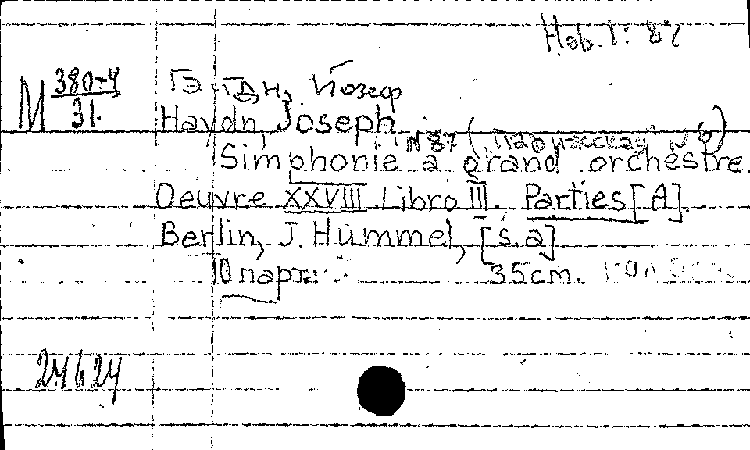 Нов. Т: 87
М 380-4
31.
Гэйдн, Йозеф
Haydn, Joseph
№ 87 (Парижская № 6)
Simphonie a grand orchestre.
Oeuvre XXVIII Libro III. Parties [A].
Berlin, J. Hummel, [s.a]
10 парт. 35cm.
24624